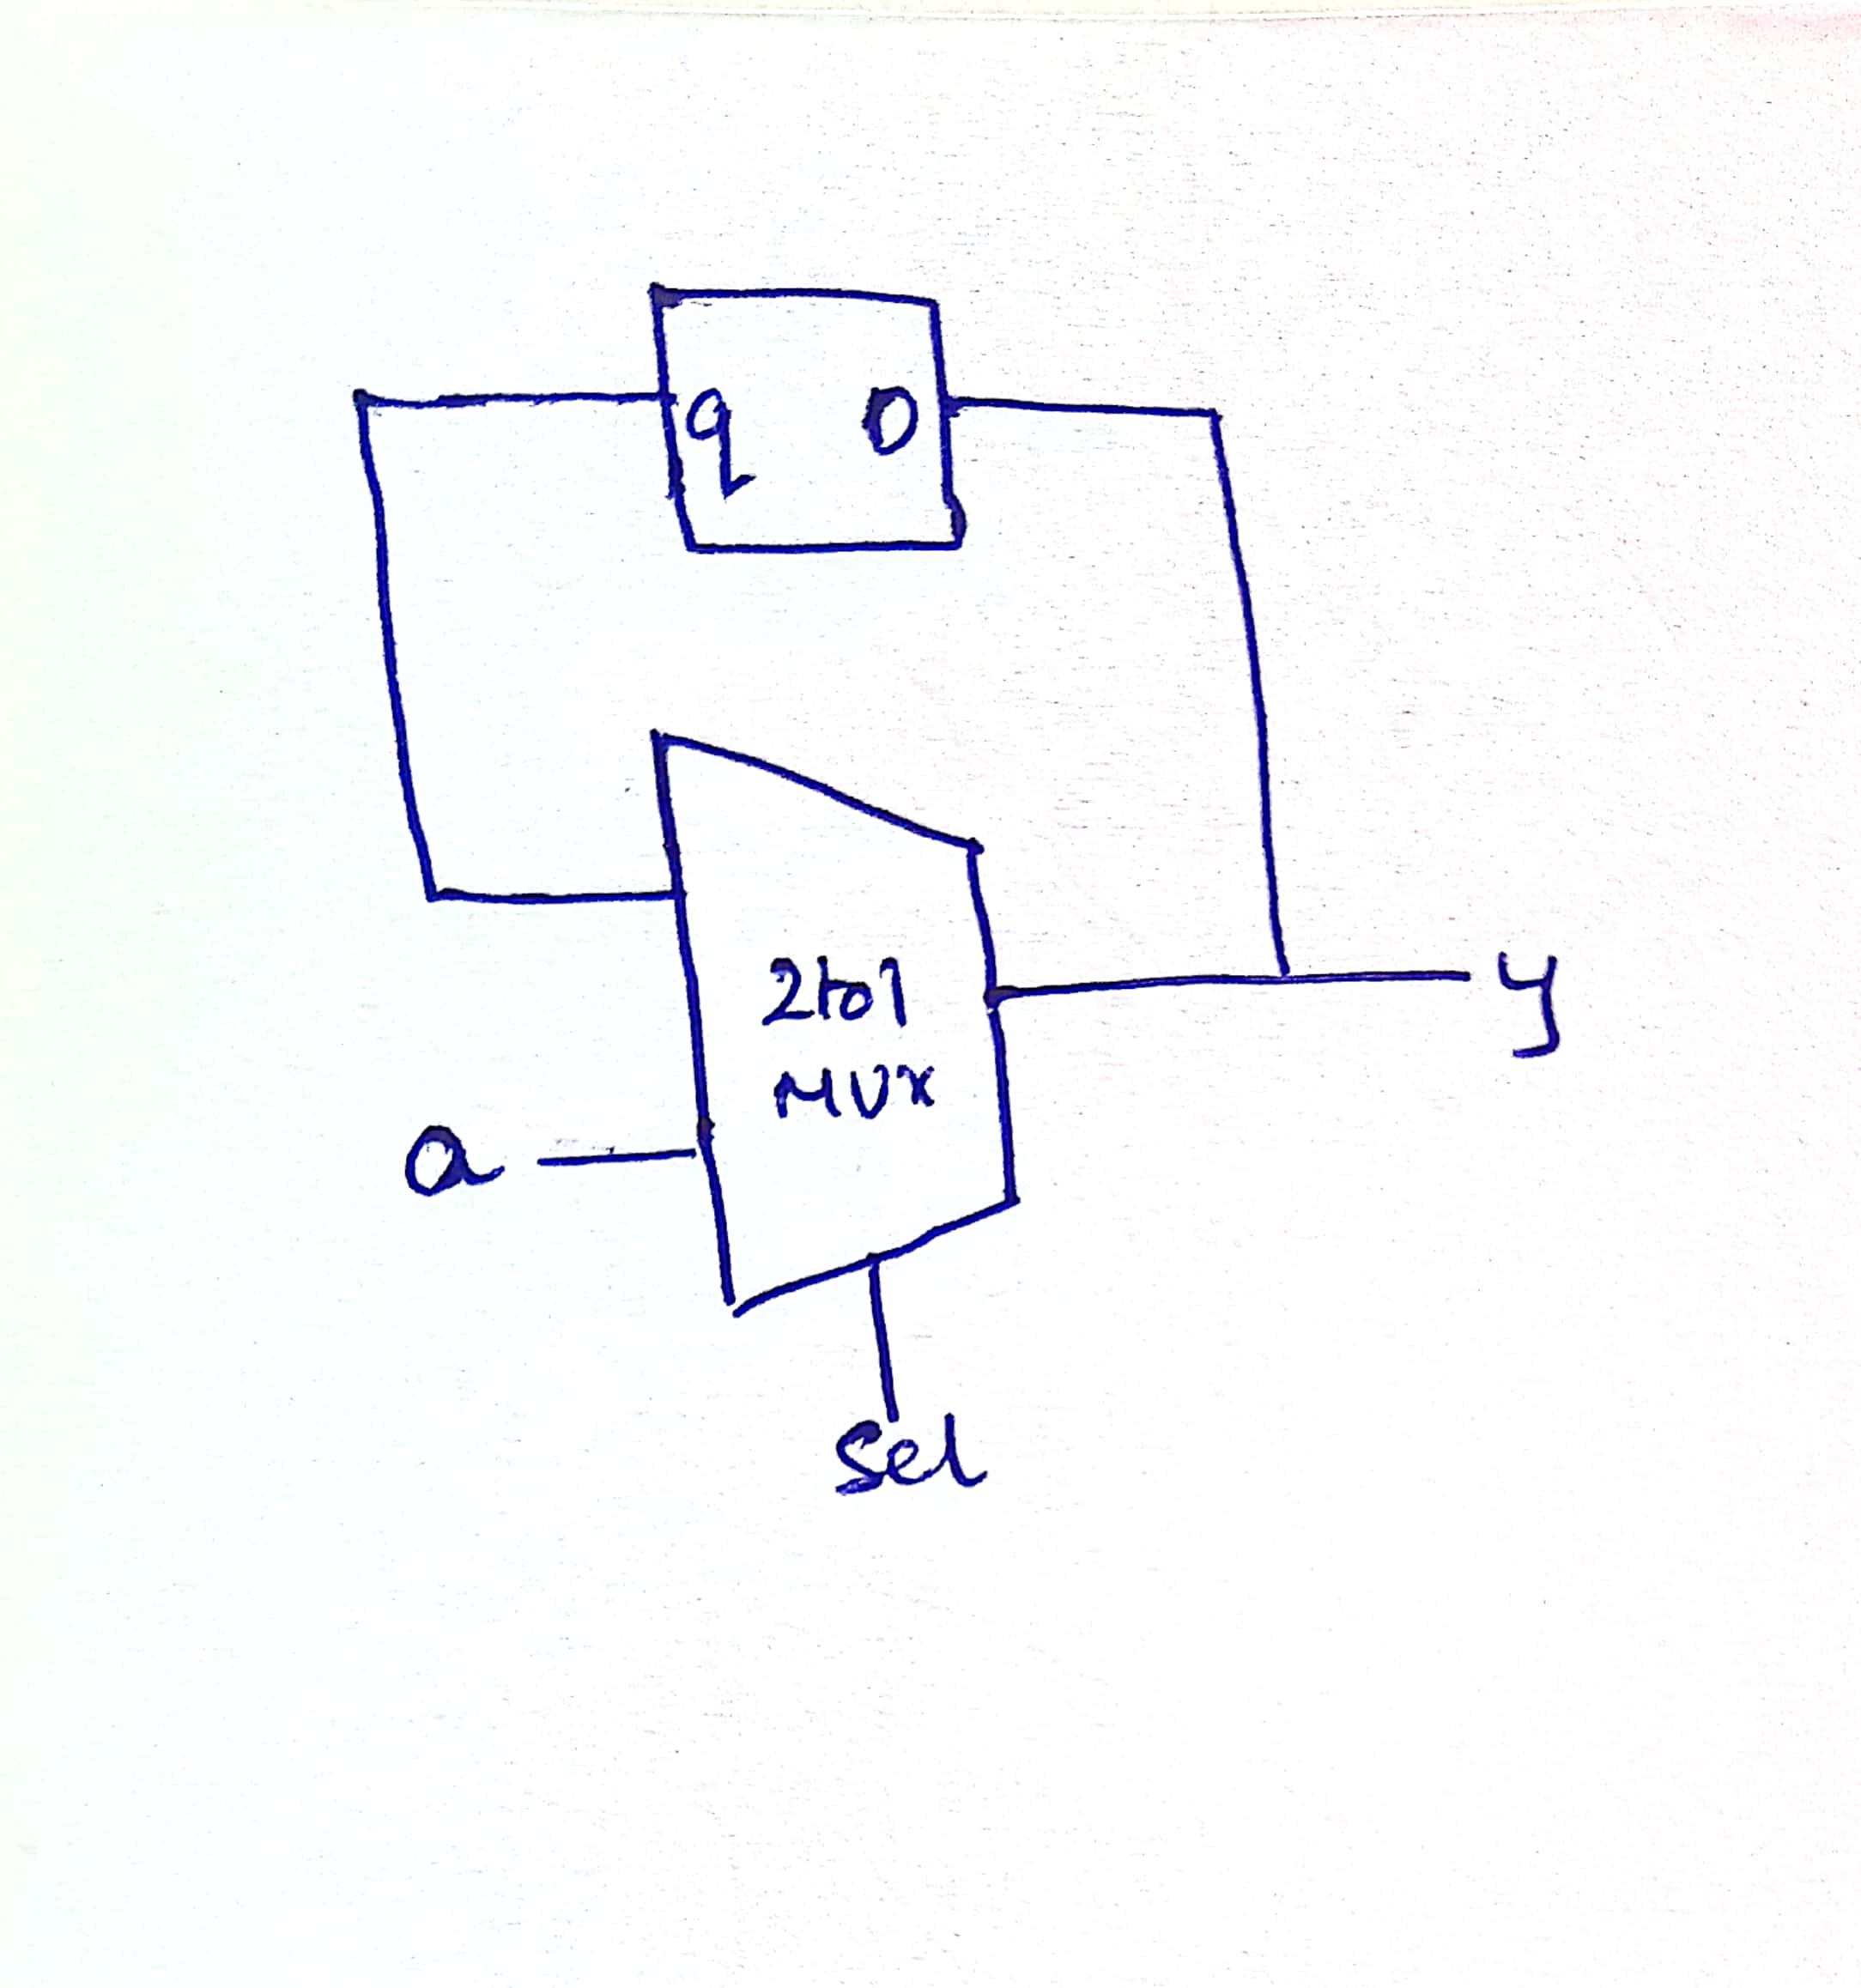 q D
2to1
MUX
a
y
sel